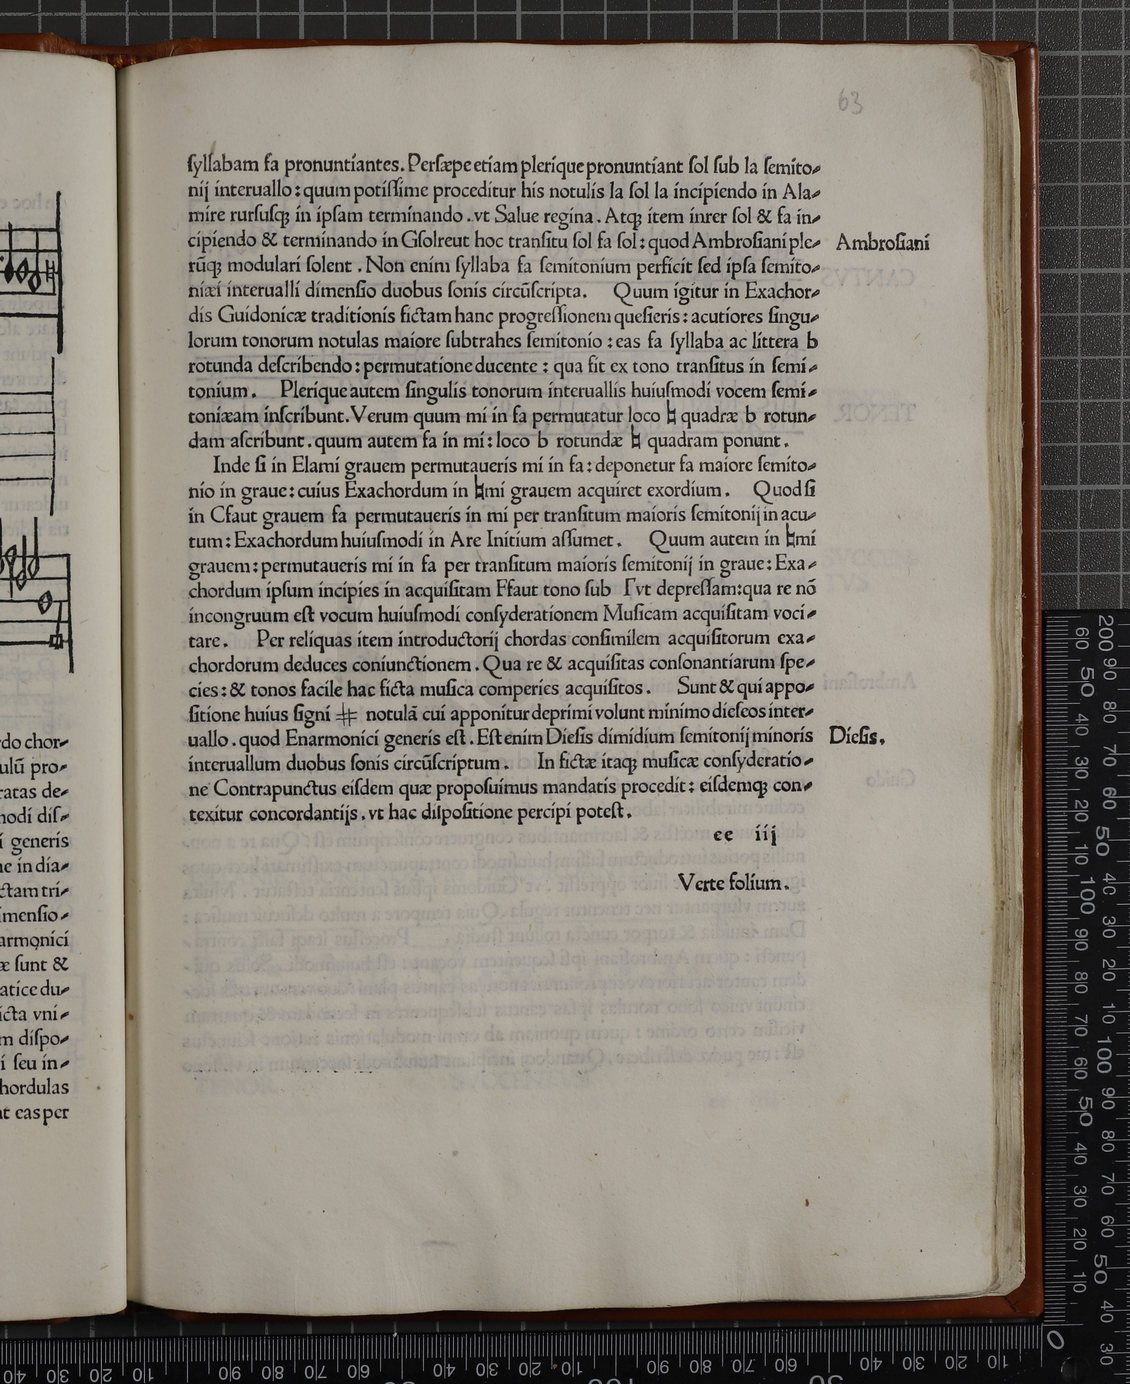 63
ſyllabam fa pronuntiantes. Perſæpe etiam plerique pronuntiant ſol ſub la ſemito-
nij interuallo: quum potiſſime proceditur his notulis la ſol la incipiendo in Ala-
mire rurſuſqꝫ in ipſam terminando. vt Salue regina. Atqꝫ item inrer ſol & fa in-
cipiendo & terminando in Gſolreut hoc tranſitu ſol fa ſol: quod Ambroſiani ple-
Ambroſiani
rūqꝫ modulari ſolent. Non enim ſyllaba fa ſemitonium perficit ſed ipſa ſemito-
niæi interualli dimenſio duobus ſonis circūſcripta. Quum igitur in Exachor-
dis Guidonicæ traditionis fictam hanc progreſſionem queſieris: acutiores ſingu-
lorum tonorum notulas maiore ſubtrahes ſemitonio: eas fa ſyllaba ac littera b
rotunda deſcribendo: permutatione ducente: qua fit ex tono tranſitus in ſemi-
tonium. Plerique autem ſingulis tonorum interuallis huiuſmodi vocem ſemi-
toniæam inſcribunt. Verum quum mi in fa permutatur loco ♮ quadræ b rotun-
dam aſcribunt. quum autem fa in mi: loco b rotundæ ♮ quadram ponunt.
Inde ſi in Elami grauem permutaueris mi in fa: deponetur fa maiore ſemito-
nio in graue: cuius Exachordum in ♮mi grauem acquiret exordium. Quod ſi
in Cfaut grauem fa permutaueris in mi per tranſitum maioris ſemitonij in acu-
tum: Exachordum huiuſmodi in Are Initium aſſumet. Quum autem in ♮mi
grauem: permutaueris mi in fa per tranſitum maioris ſemitonij in graue: Exa-
chordum ipſum incipies in acquiſitam Ffaut tono ſub Γvt depreſſam: qua re nō
incongruum eſt vocum huiuſmodi conſyderationem Muſicam acquiſitam voci-
tare. Per reliquas item introductorij chordas conſimilem acquiſitorum exa-
chordorum deduces coniunctionem. Qua re & acquiſitas conſonantiarum ſpe-
cies: & tonos facile hac ficta muſica comperies acquiſitos. Sunt & qui appo-
ſitione huius ſigni # notulā cui apponitur deprimi volunt minimo dieſeos inter-
uallo. quod Enarmonici generis eſt. Eſt enim Dieſis dimidium ſemitonij minoris
Dieſis.
interuallum duobus ſonis circūſcriptum. In fictæ itaqꝫ muſicæ conſyderatio-
ne Contrapunctus eiſdem quæ propoſuimus mandatis procedit: eiſdemqꝫ con-
texitur concordantijs. vt hac diſpoſitione percipi poteſt.
ee iij
Verte folium.
do chor-
ulū pro-
ratas de-
nodi diſ-
i generis
ne in dia-
ctam tri-
imenſio-
armonici
æ ſunt &
atice du-
icta vni-
m diſpo-
i ſeu in-
hordulas
nt eas per